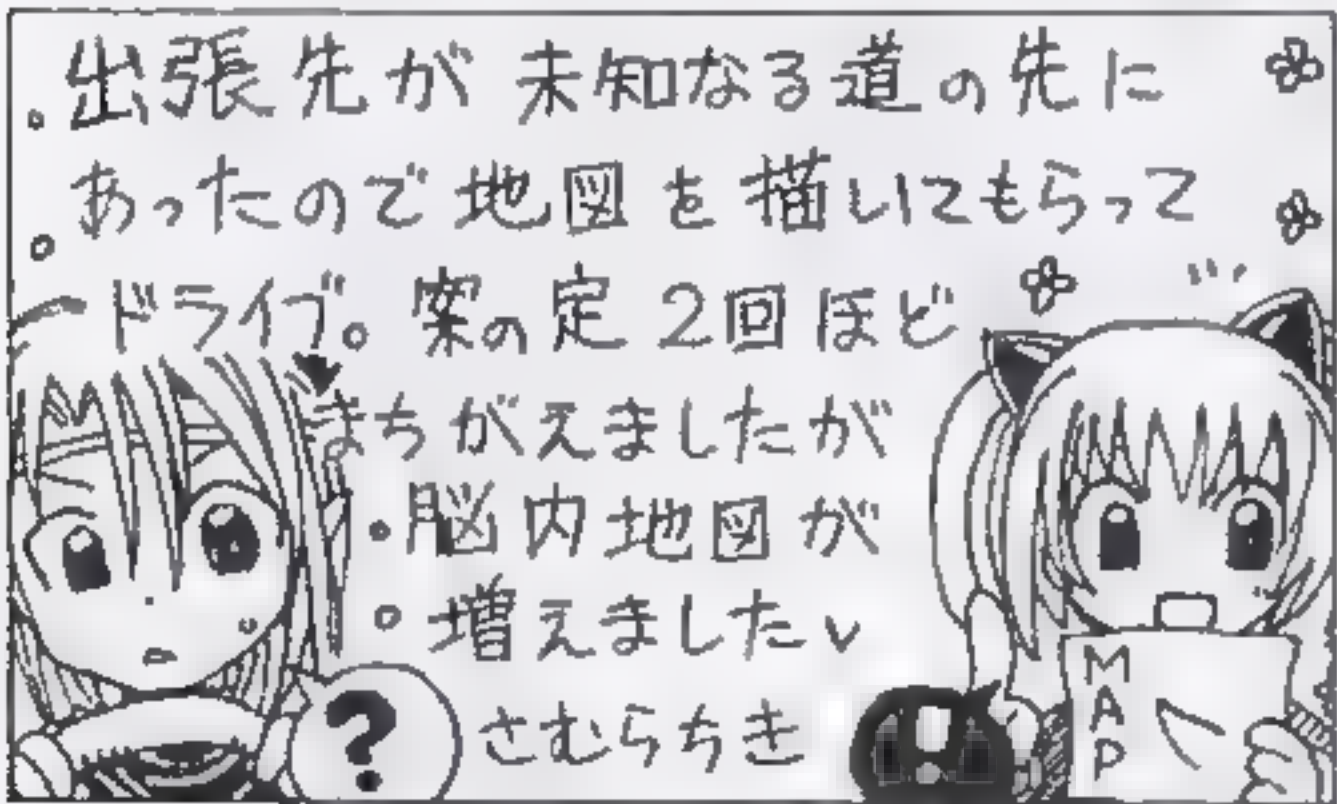 出張先が未知なる道の先に
あったので地図を描いてもらって
ドライブ。案の定2回ほど
まちがえましたが
脳内地図が
増えました
さむらちき
?
MAP